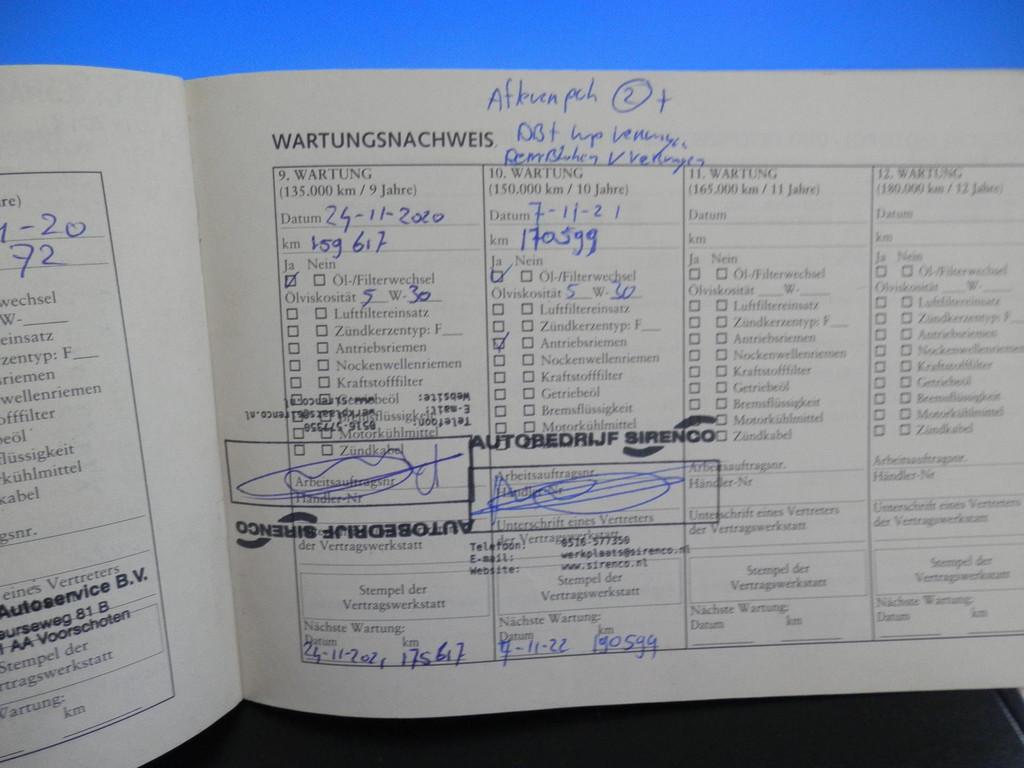 re)
1-20
72
wechsel
W-____
einsatz
zentyp: F___
riemen
wellenriemen
offfilter
beöl
flüssigkeit
kühlmittel
kabel
gsnr.
eines Vertreters
Autoservice B.V.
eurseweg 81 B
AA Voorschoten
Stempel der
rtragswerkstatt
Wartung:
km
2 +
WARTUNGSNACHWEIS
9. WARTUNG
(135.000 km / 9 Jahre)
Datum 24-11-2020
km 159617
Ja Nein
Öl-/Filterwechsel
Ölviskosität 5 W-30
Luftfiltereinsatz
Zündkerzentyp: F___
Antriebsriemen
Nockenwellenriemen
Kraftstofffilter
Motorkühlmittel
Zündkabel
Telefoon: 0516-577350
E-mail: werkplaats@sirenco.nl
Website: www.sirenco.nl
Arbeitsauftragsnr.
Händler-Nr
AUTOBEDRIJF SIRENCO
der Vertragswerkstatt
Stempel der
Vertragswerkstatt
Nächste Wartung:
Datum km
24-11-2021 175617
10. WARTUNG
(150.000 km / 10 Jahre)
Datum 7-11-21
km 170599
Ja Nein
Öl-/Filterwechsel
Ölviskosität 5 W-30
Luftfiltereinsatz
Zündkerzentyp: F___
Antriebsriemen
Nockenwellenriemen
Kraftstofffilter
Getriebeöl
Bremsflüssigkeit
Motorkühlmittel
AUTOBEDRIJF SIRENCO
Arbeitsauftragsnr.
Händler-Nr
Unterschrift eines Vertreters
der Vertragswerkstatt
Telefoon: 0516-577350
E-mail: werkplaats@sirenco.nl
Website: www.sirenco.nl
Stempel der
Vertragswerkstatt
Nächste Wartung:
Datum km
7-11-22 190599
11. WARTUNG
(165.000 km / 11 Jahre)
Datum
km
Ja Nein
Öl-/Filterwechsel
Ölviskosität ___W-____
Luftfiltereinsatz
Zündkerzentyp: F___
Antriebsriemen
Nockenwellenriemen
Kraftstofffilter
Getriebeöl
Bremsflüssigkeit
Motorkühlmittel
Zündkabel
Arbeitsauftragsnr.
Händler-Nr
Unterschrift eines Vertreters
der Vertragswerkstatt
Stempel der
Vertragswerkstatt
Nächste Wartung:
Datum km
12. WARTUNG
(180.000 km / 12 Jahre)
Datum
km
Ja Nein
Öl-/Filterwechsel
Ölviskosität ___W-____
Luftfiltereinsatz
Zündkerzentyp: F___
Antriebsriemen
Nockenwellenriemen
Kraftstofffilter
Getriebeöl
Bremsflüssigkeit
Motorkühlmittel
Zündkabel
Arbeitsauftragsnr.
Händler-Nr
Unterschrift eines Vertreters
der Vertragswerkstatt
Stempel der
Vertragswerkstatt
Nächste Wartung:
Datum km